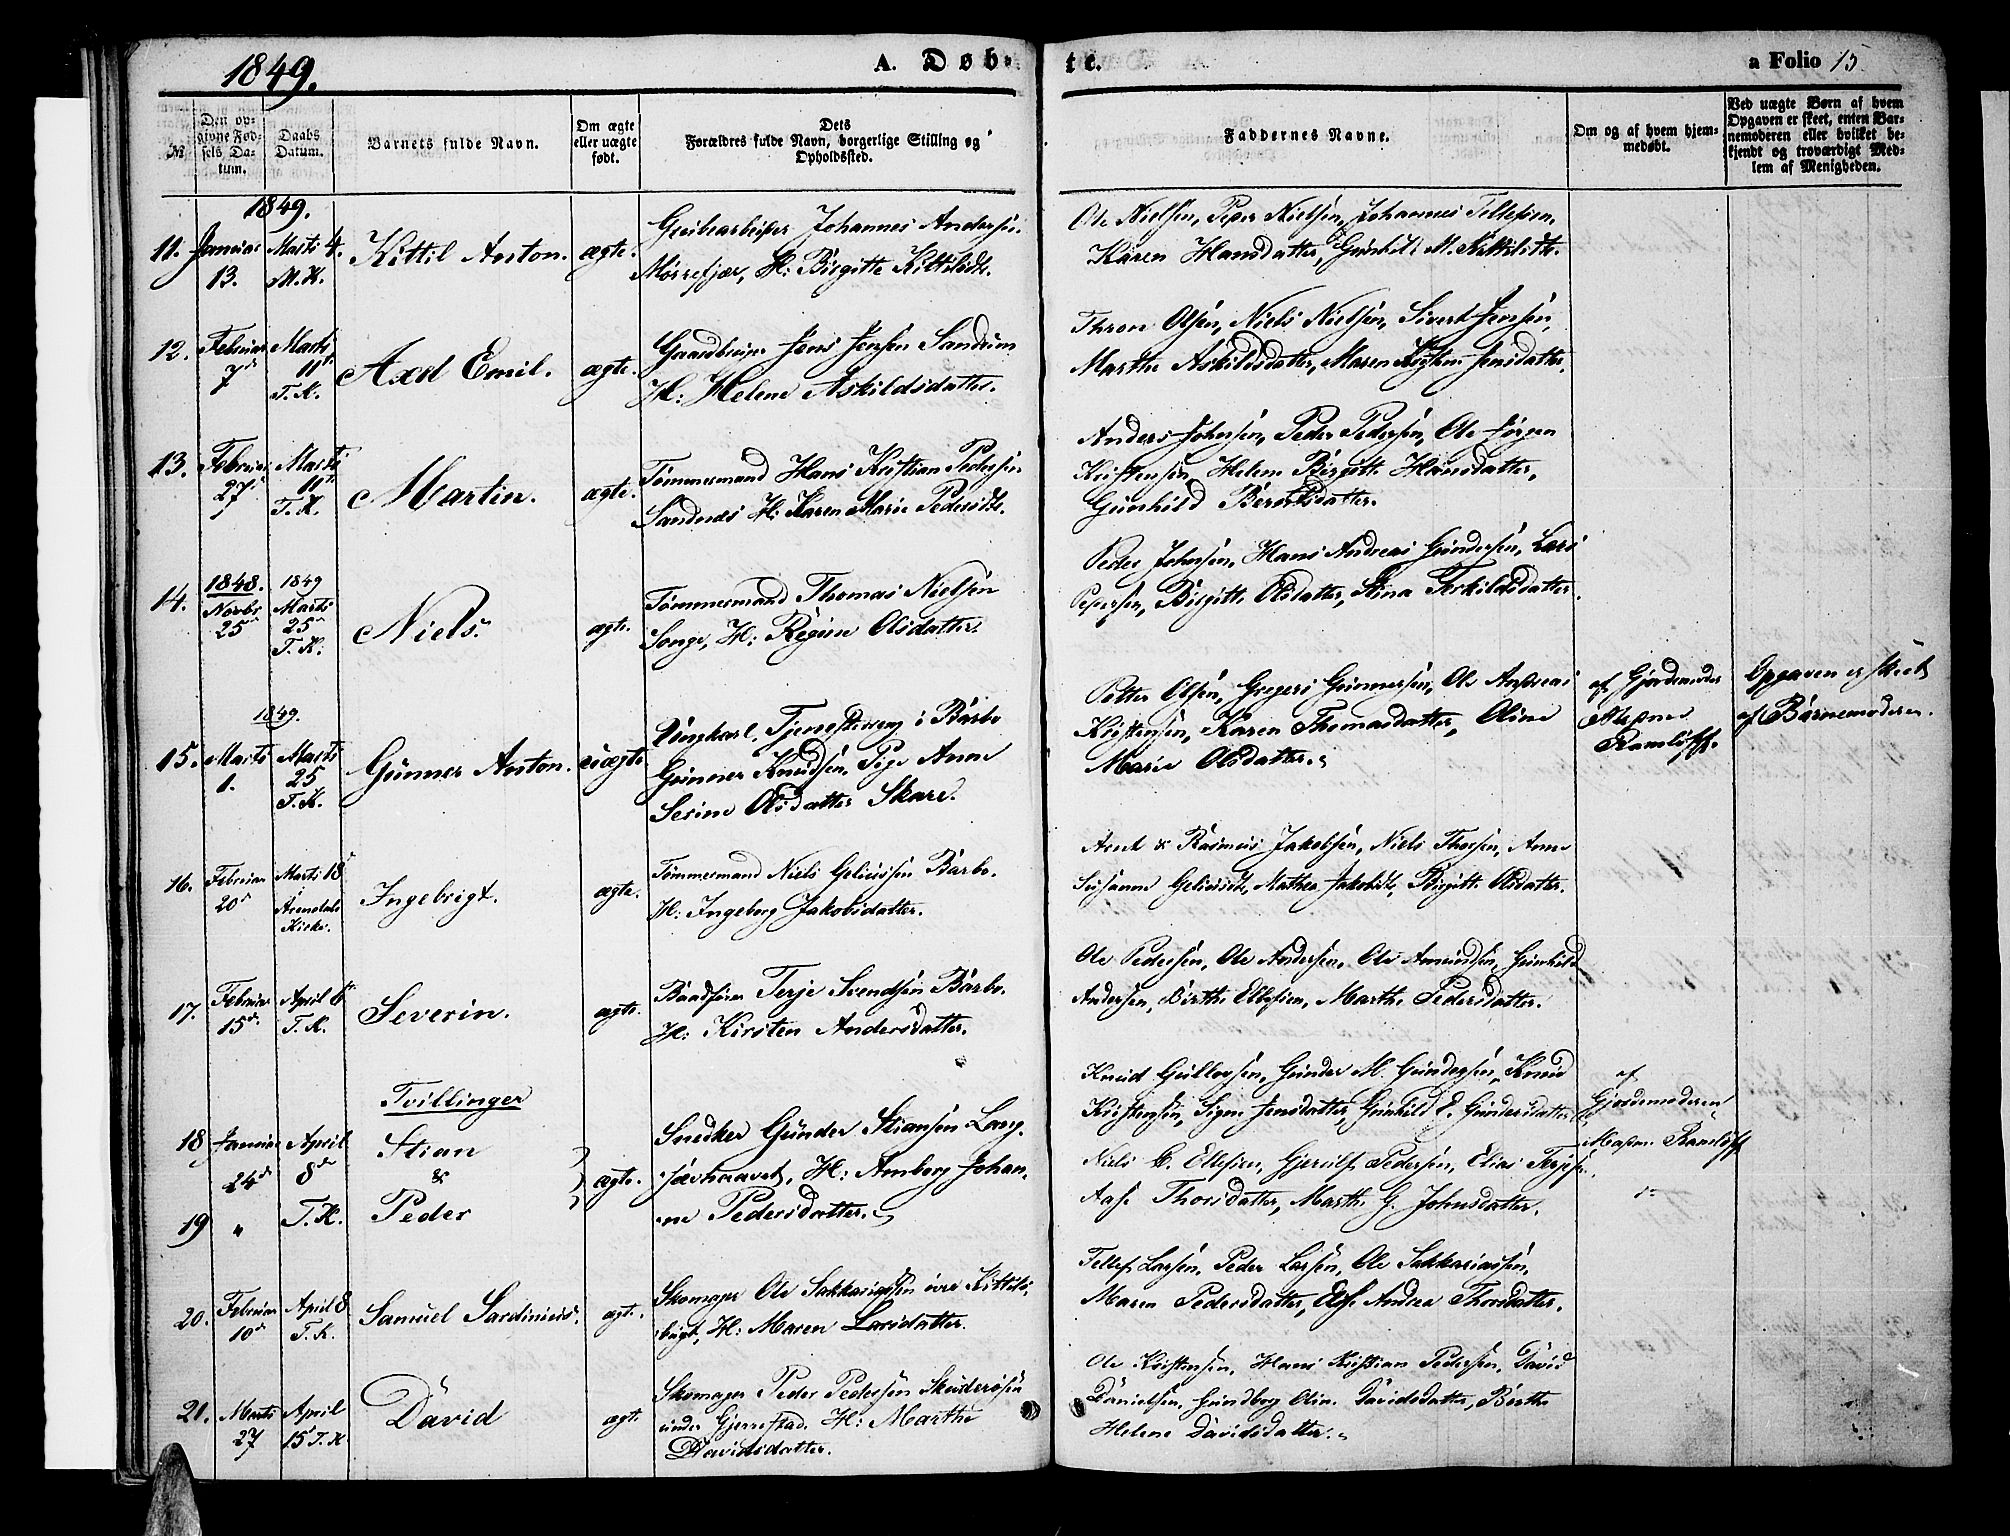 1849.
A. Døb-
te.
a Folio 15.
№
Den op-
givne Fød-
sels Da-
tum.
Daabs
Datum.
Barnets fulde Navn.
Om ægte
eller uægte
født.
Dets
Forældres fulde Navn, borgerlige Stilling og
Opholdssted.
Faddernes Navne.
Om og af hvem hjem-
medøbt.
Ved uægte Børn af hvem
Opgaven er skeet, enten Bar-
nemoderen eller hvilket be-
kjendt og troværdigt Med-
lem af Menigheden.
1849.
11. Januar 13. Marts 4. M.K. Kittil Anton. ægte.
Johannes Andersen
Mørrefjær, H: Birgitte Kittilsdt.
Ole Nielsen, Peder Nielsen, Johannes Tellefsen,
Karen Hansdatter, Gunhild M. Kittilsdtr.
12. Februar 7de Marts 11te T.K. Axel Emil. ægte.
Gaardbruger Jens Jensen Sandum
H: Helene Askildsdatter.
Thron Olsen, Niels Nielsen, Sivert Jensen,
Marthe Askildsdatter, Maren Jensdatter.
13. Februar 27 Marts 11te T.K. Martin. ægte.
Tømmermand Hans Kristian Pedersen
Sandnes H: Karen Marie Pedersdt.
Anders Johnsen, Peder Pedersen, Ole Jørgen
Kristensen, Helene Birgitte Hansdatter,
Gunhild Berntsdatter.
14. 1848. Novbr 25de 1849 Marts 25de T.K. Niels. ægte.
Tømmermand Thomas Nielsen
Songe, H: Regine Olsdatter.
Peder Johnsen, Hans Andreas Gundersen, Lars
Pedersen, Birgitte Olsdatter, Stina Terkildsdatter.
1849.
15. Marts 1. Marts 25 T.K. Gunner Anton. uægte
Ungkarl, Tjenestedreng i Barbo
Gunner Knudsen, Pige Anne
Serine Olsdatter Skare.
Petter Olsen, Gregers Gunnersen, Ole Andreas
Kristensen, Karen Thomasdatter, Oline
Marie Olsdatter.
af Gjordemoder
Madme
Ramløff.
Opgaven er skeet
af Barnemoderen.
16. Februar 20de Marts 18de i Arendals Kirke. Ingebrigt. ægte.
Tømmermand Niels Geliussen Barbo.
H: Ingeborg Jakobsdatter.
Arent & Rasmus Jakobsen, Niels Thorsen, Anne
Susanne Geliusdt, Mathea Jakobsdt, Birgitte Olsdatter.
17. Februar 15de April 6te T.K. Severin. ægte.
Terje Svendsen Barbo.
H: Kirsten Andersdatter.
Ole Pedersen, Ole Andersen, Ole Amundsen, Gunhild
Andersen, Birthe Ellefsen, Marthe Pedersdatter.
Tvillinger
18 Januar 24de April 8de Stian
&
19 " T.K. Peder ægte.
Snedker Gunder Stiansen Lang-
sævhaavet, H: Amborg Johan-
ne Pedersdatter.
Knud Gullovsen, Gunder M. Gundersen, Knud
Kristensen, Signe Jensdatter, Gunhild E. Gundersdatter
Niels C. Ellefsen, Gjerulf Pedersen, Elias Terjesen.
Aase Thorsdatter, Marthe G. Johnsdatter.
af
Gjordemoderen
Madme. Ramløff
do
20. Februar 10de April 8 T.K. Samuel Sardinius. ægt.
Skomager Ole Sakkariassen øvre Kittels-
bugt, H: Maren Larsdatter.
Tellef Larsen, Peder Larsen, Ole Sakkariassen,
Maren Pedersdatter, Else Andrea Thorsdatter.
21. Marts 27 April 15 T.K. David ægt.
Skomager Peder Pedersen Skuderøsen
under Gjerrestad. H: Marthe
Davidsdatter.
Ole Kristensen, Hans Kristian Pedersen, David
Danielsen, Gundborg Olin. Davidsdatter, Birthe
Helene Davidsdatter.